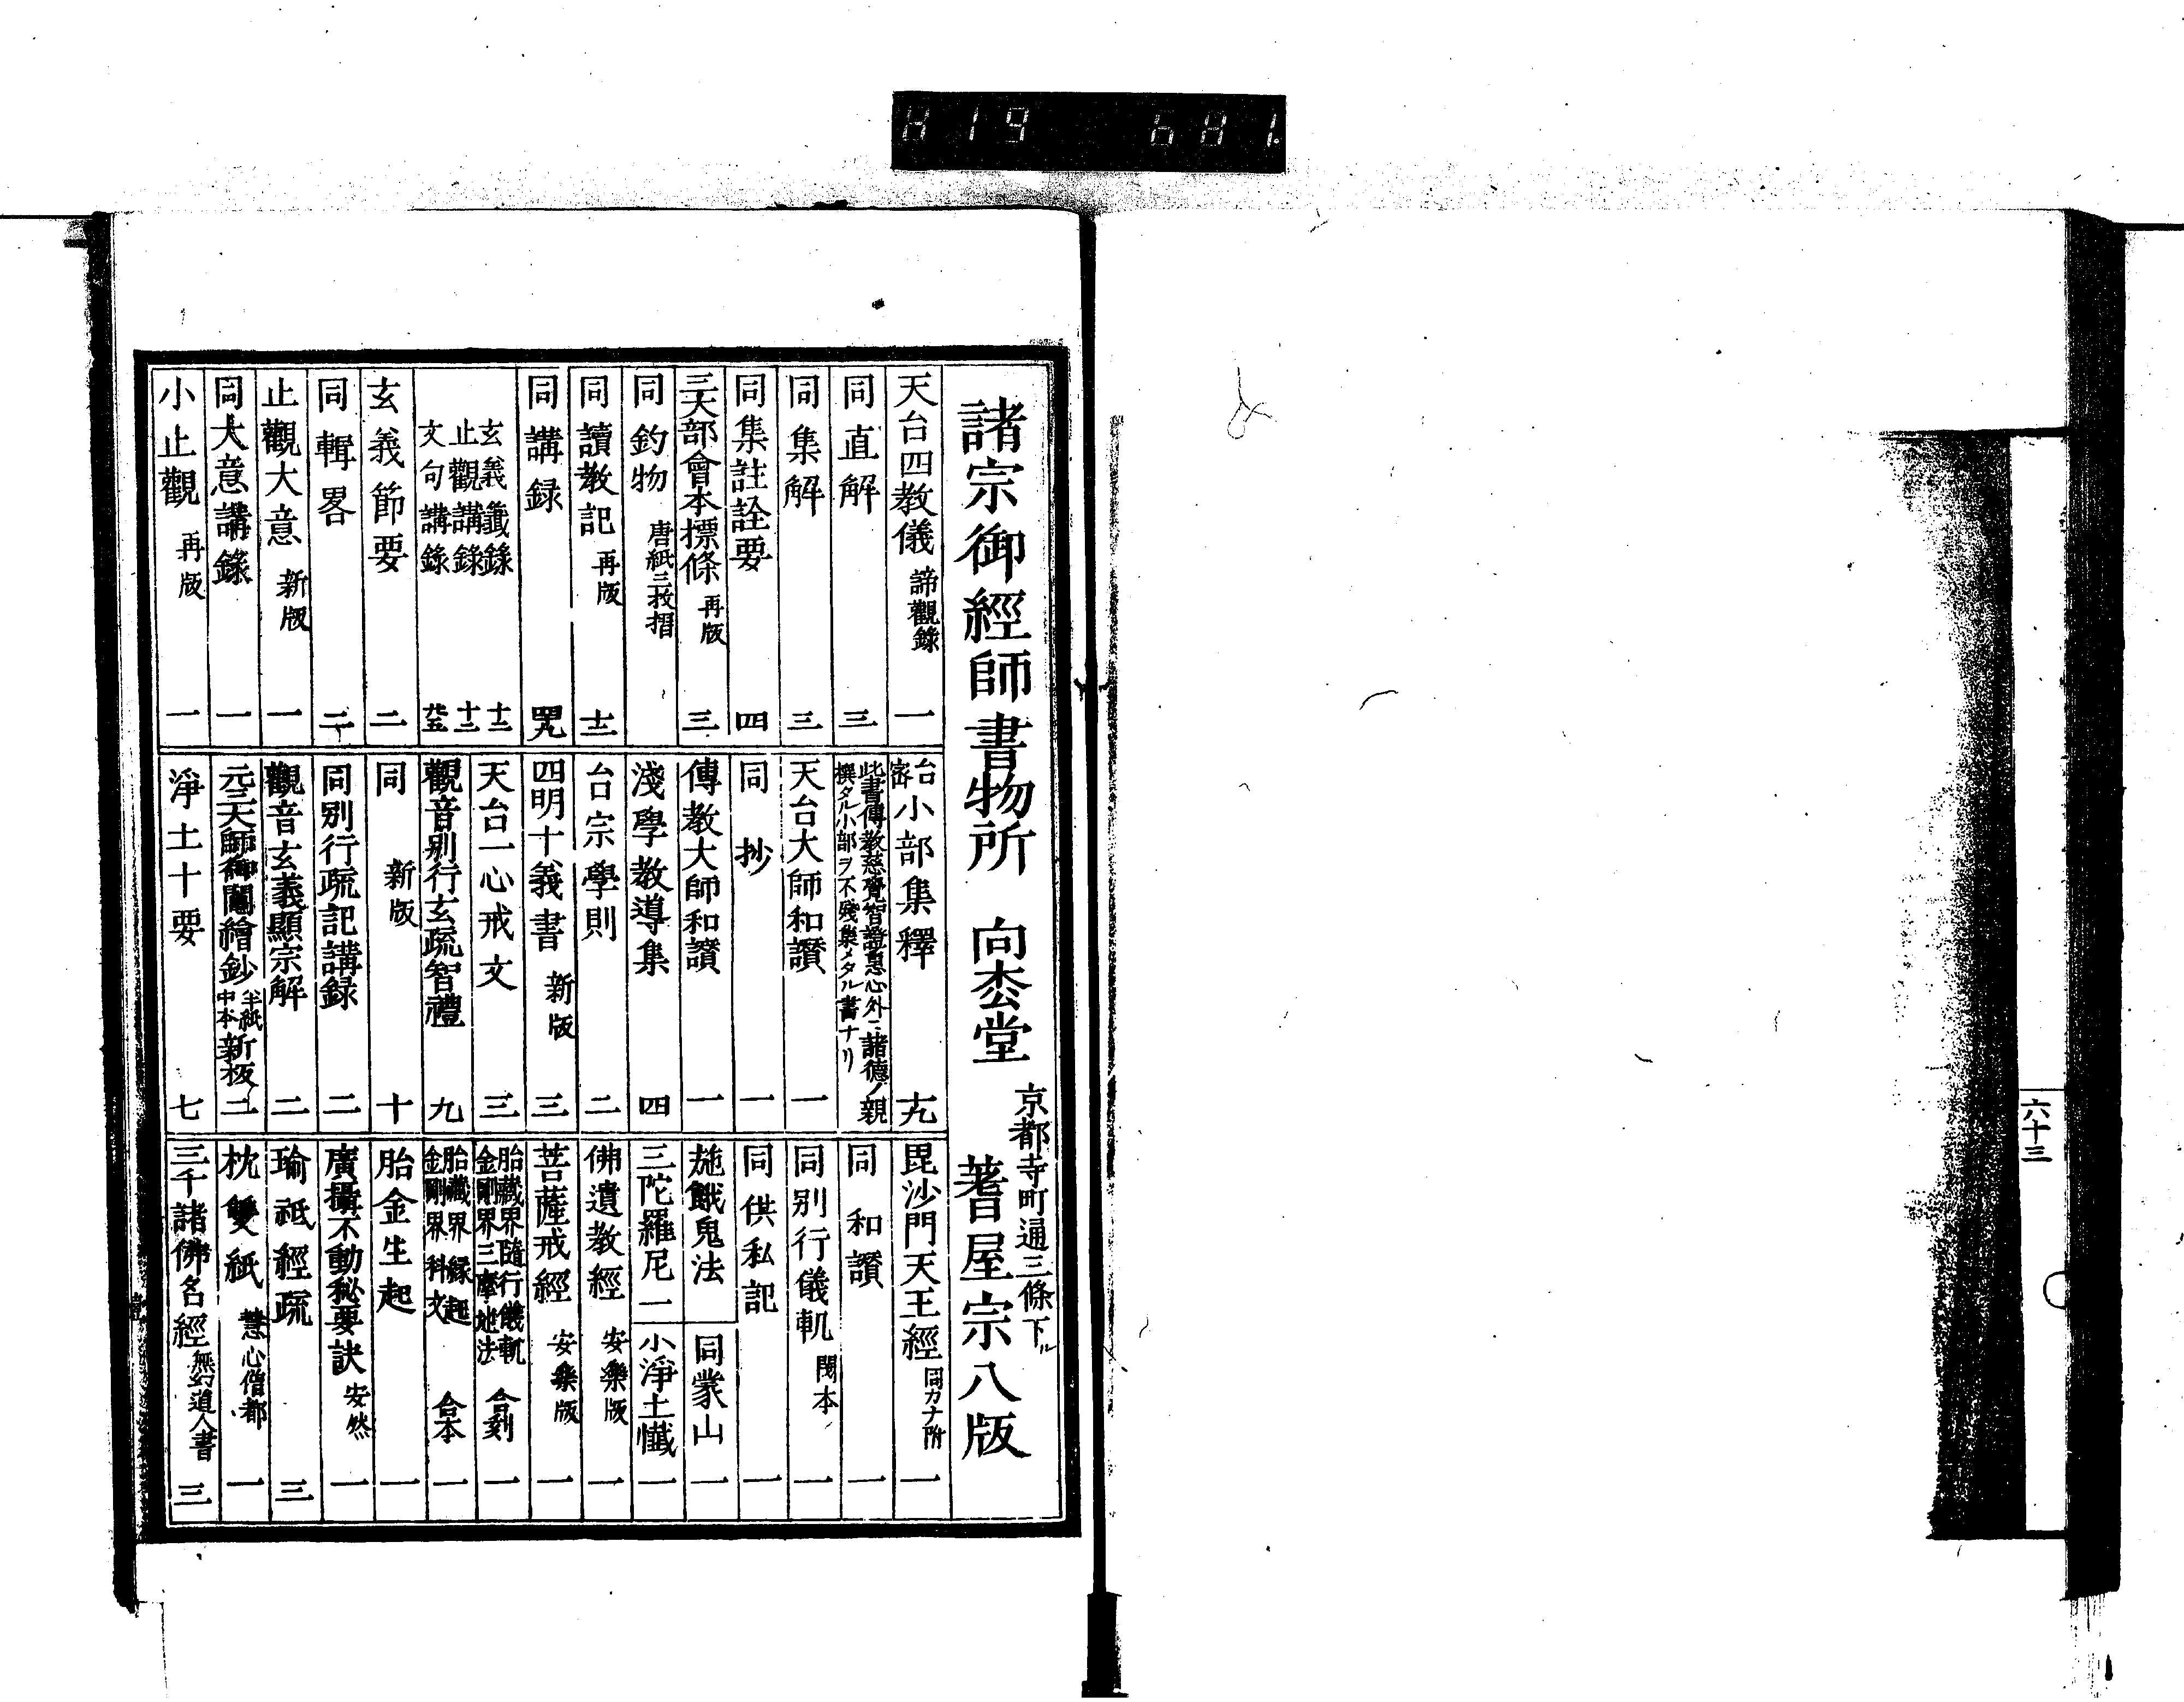 H19 6H1.
六十三
諸宗御經師書物所 向松堂 京都寺町通三條下ル 著屋宗八版
天台四教儀 諦觀錄 一
同直解 三
同集解 三
同集註詮要 四
三大部會本標條 再版 三
同釣物 唐紙三枚摺
同讀教記 再版 十二
同講録
玄義籤錄 十二
止觀講錄 十二
文句講錄
玄義節要 二
同輯畧 二
止觀大意 新版 一
同大意講錄 一
小止觀 再版 一
台密小部集釋 十九
此書傳教慈覺智證惠心外ニ諸德ノ親
撰タル小部ヲ不殘集メタル書ナリ
天台大師和讃 一
同抄 一
傳教大師和讃 一
淺學教導集 四
台宗學則 二
四明十義書 新版 三
天台一心戒文 三
觀音別行玄疏智禮 九
同 新版 十
同別行疏記講録 二
觀音玄義顯宗解 二
元三大師御鬮繪鈔 半紙中本 新板 二
淨土十要 七
毘沙門天王經 同カナ附 一
同和讃 一
同別行儀軌 閲本 一
同供私記 一
施餓鬼法 同蒙山 一
三陀羅尼 一 小淨土懺 一
佛遺教經 安樂版 一
菩薩戒經 安樂版 一
胎藏界隨行儀軌
金剛界三摩地法 合刻 一
胎藏界縁起
金剛界科文 合本 一
胎金生起 一
廣攝不動秘要訣 安然 一
瑜祇經疏 三
枕雙紙 慧心僧都 一
三千諸佛名經 無幻道人書 三